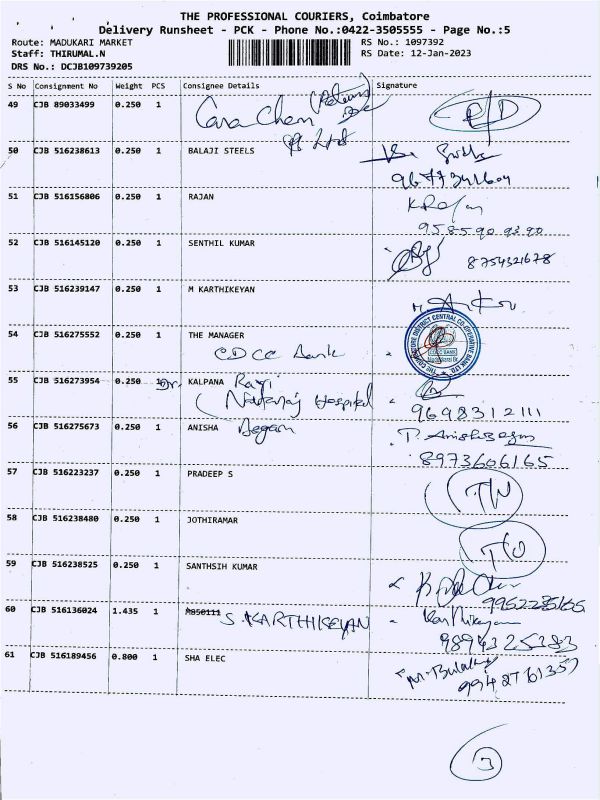 THE PROFESSIONAL COURIERS, Coimbatore
Delivery Runsheet - PCK - Phone No.:0422-3505555 - Page No.:5
Route: MADUKARI MARKET RS No.: 1097392
Staff: THIRUMAL.N RS Date: 12-Jan-2023
DRS No.: DCJB109739205
S No Consignment No Weight PCS Consignee Details Signature
49 CJB 89033499 0.250 1 Cara Chem
50 CJB 516238613 0.250 1 BALAJI STEELS
51 CJB 516156806 0.250 1 RAJAN
52 CJB 516145120 0.250 1 SENTHIL KUMAR
8754321678
53 CJB 516239147 0.250 1 M KARTHIKEYAN
54 CJB 516275552 0.250 1 THE MANAGER
CDCC Bank
55 CJB 516273954 0.250 1 Dr. KALPANA Ravi
Nataraj Hospital
9698312111
56 CJB 516275673 0.250 1 ANISHA Begam
P. Anisha Begam
8973606165
57 CJB 516223237 0.250 1 PRADEEP S
58 CJB 516238480 0.250 1 JOTHIRAMAR
59 CJB 516238525 0.250 1 SANTHSIH KUMAR
60 CJB 516136024 1.435 1 M850111 S.KARTHIKEYAN
Karthikeyan
9894325383
61 CJB 516189456 0.800 1 SHA ELEC
3